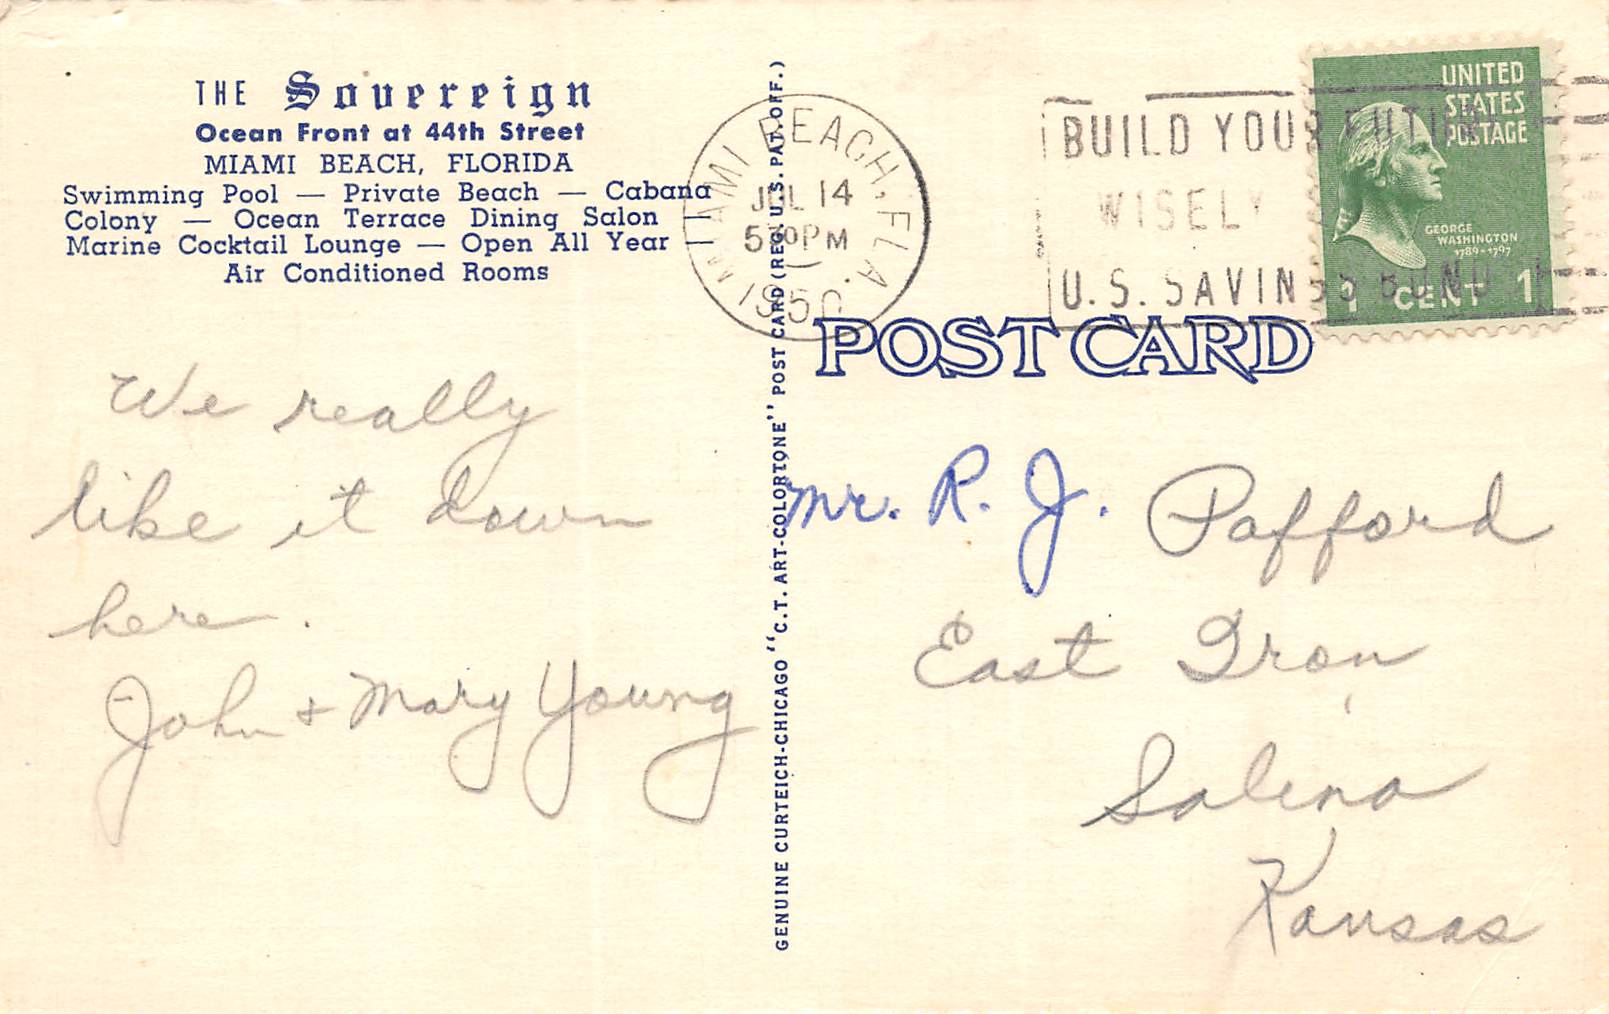 THE Sovereign
Ocean Front at 44th Street
MIAMI BEACH, FLORIDA
Swimming Pool — Private Beach — Cabana
Colony — Ocean Terrace Dining Salon —
Marine Cocktail Lounge — Open All Year —
Air Conditioned Rooms
We really
like it down
here.
John + Mary Young
GENUINE CURTEICH-CHICAGO "C.T. ART-COLORTONE" POST CARD (REG. U.S. PAT. OFF.)
MIAMI BEACH, FLA.
JUL 14
5 30 PM
1950
BUILD YOUR FUTURE
WISELY
U.S. SAVINGS BONDS
UNITED
STATES
POSTAGE
GEORGE
WASHINGTON
1789-1797
1 CENT 1
POST CARD
Mr. R. J. Pafford
East Iron
Salina
Kansas